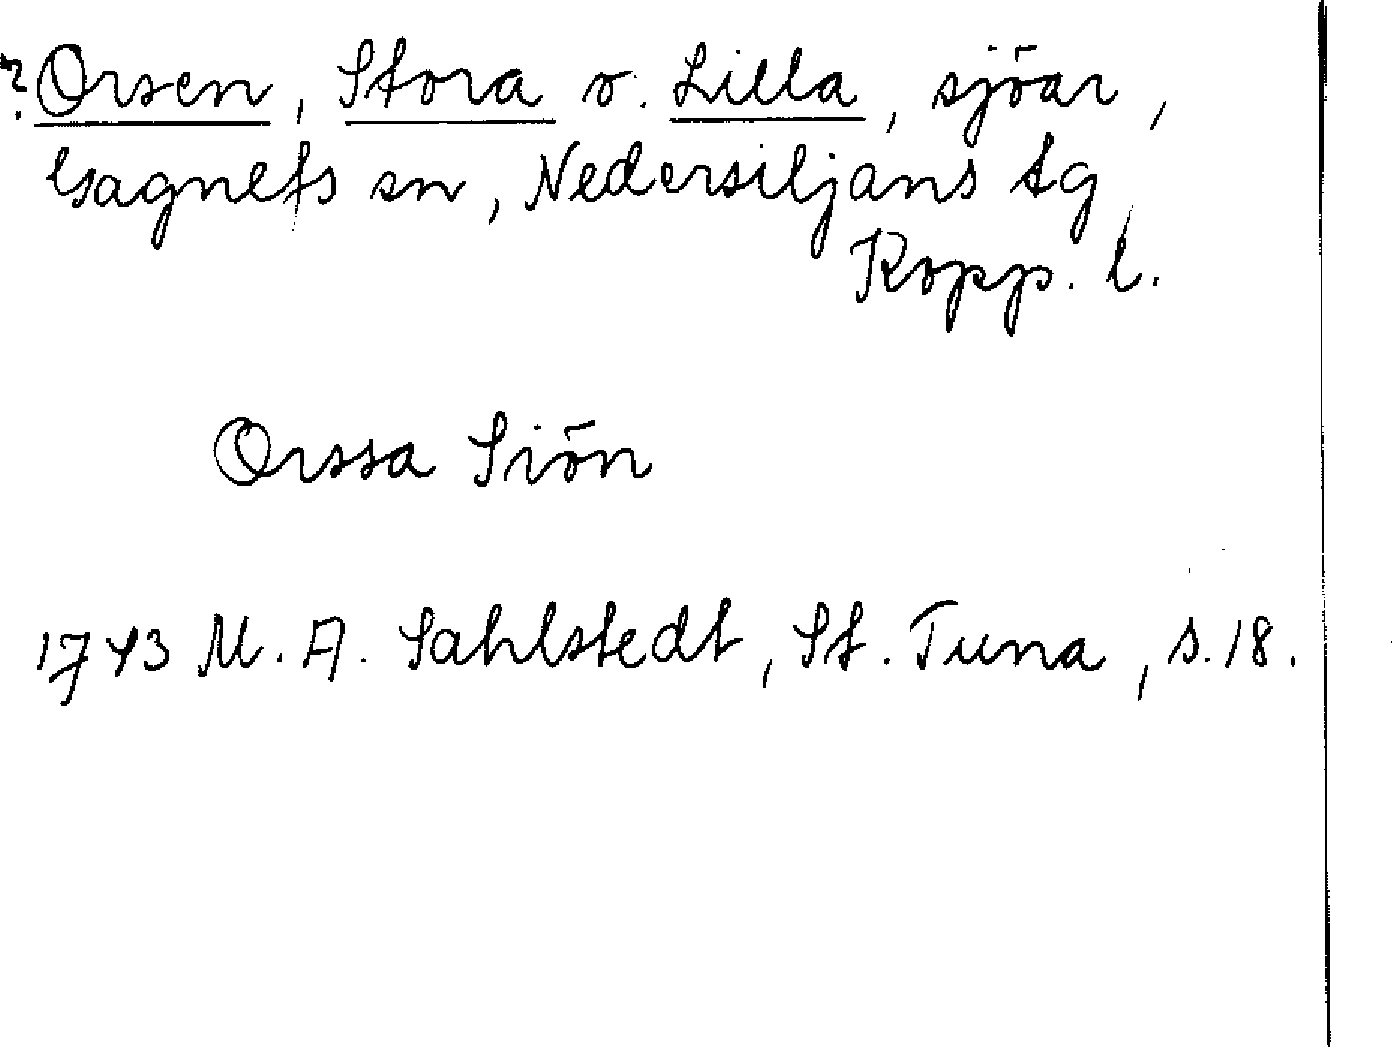 ? Orsen, Stora o. Lilla, sjöar,
Gagnefs sn, Nedersiljans tg
Kopp. l.
Orssa Siön
1743 M. A. Sahlstedt, St. Tuna, s. 18.